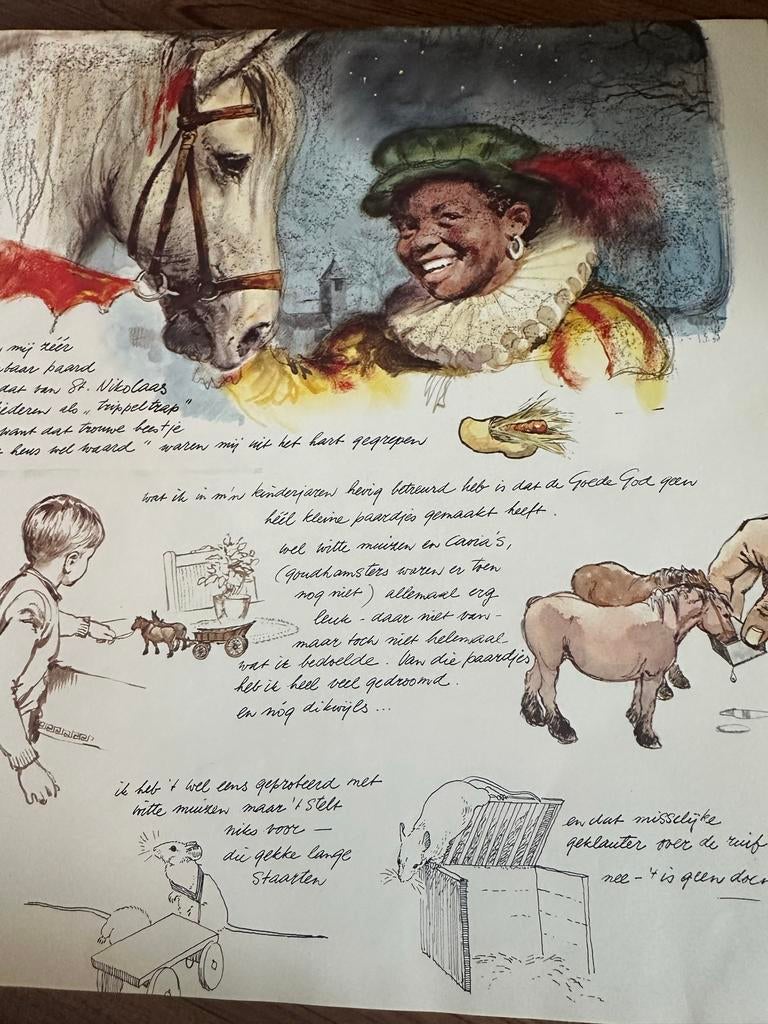 mij zéér
baar paard
dat van St. Nikolaas
iederen als „trippeltrap"
want dat trouwe beestje
heus wel waard" waren mij uit het hart gegrepen
wat ik in m'n kinderjaren hevig betreurd heb is dat de Goede God geen
héél kleine paardjes gemaakt heeft.
wel witte muizen en Cavia's,
(goudhamsters waren er toen
nog niet) allemaal erg
leuk - daar niet van -
maar toch niet helemaal
wat ik bedoelde. Van die paardjes
heb ik heel veel gedroomd.
en nóg dikwijls...
ik heb 't wel eens geprobeerd met
witte muizen maar 't stelt
niks voor —
die gekke lange
staarten
en dat misselijke
geklauter over de ruif
nee - 't is geen doen